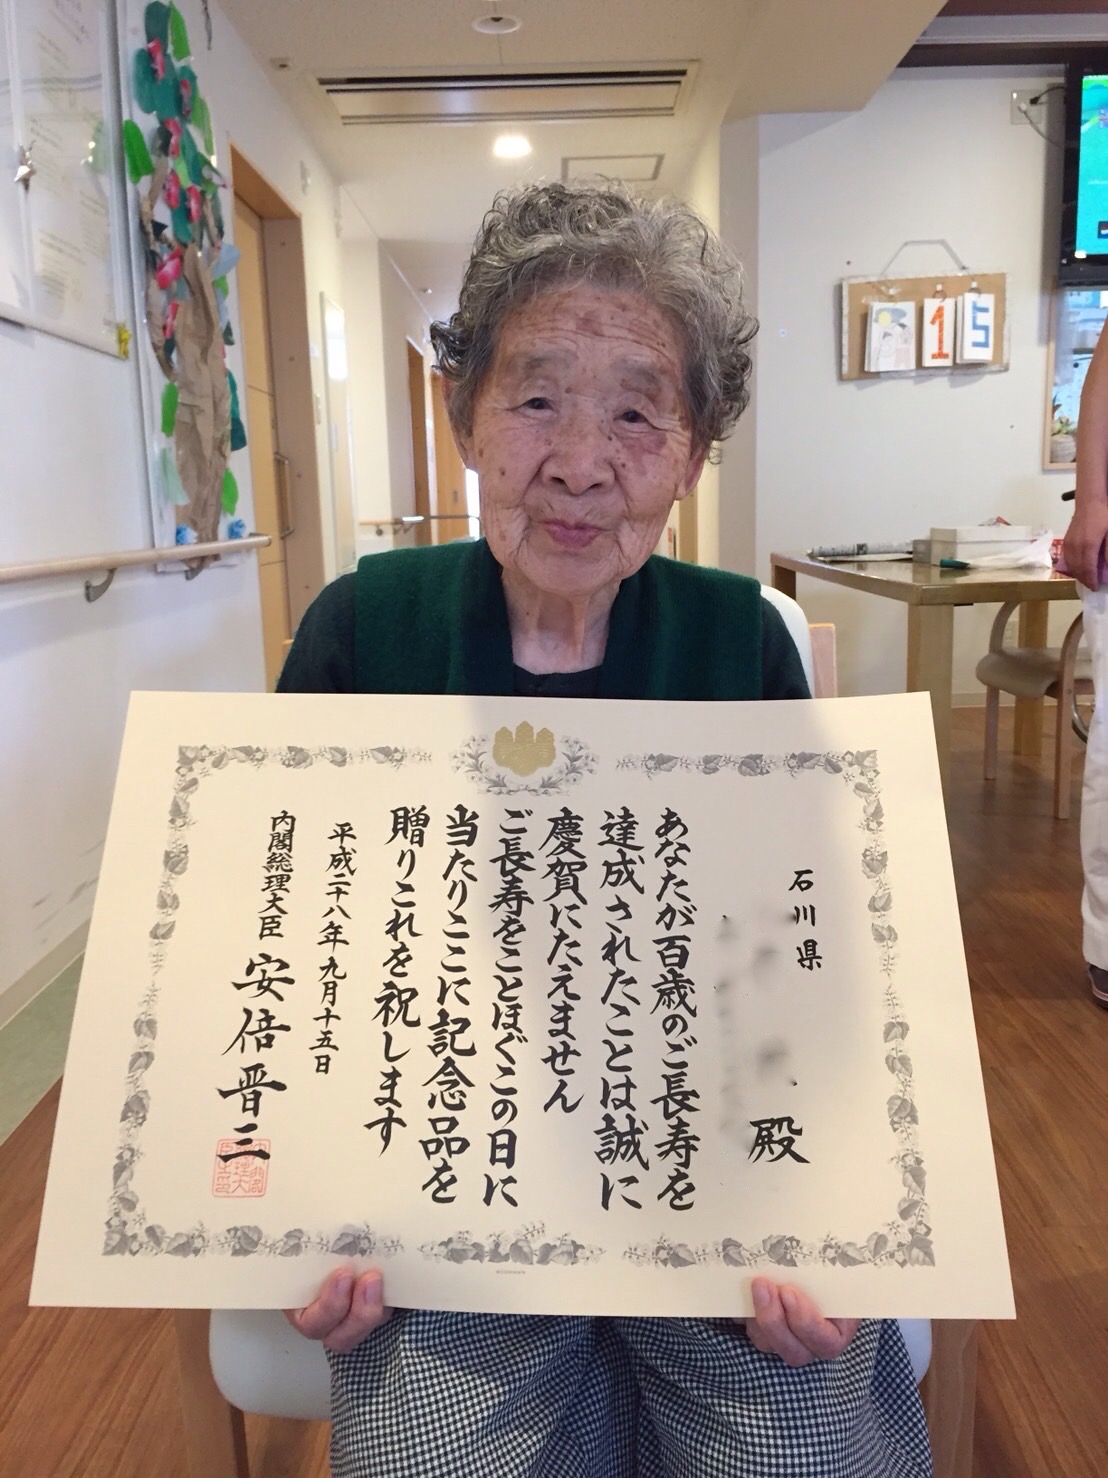 石川県
殿
あなたが百歳のご長寿を
達成されたことは誠に
慶賀にたえません
ご長寿をことほぐこの日に
当たりここに記念品を
贈りこれを祝します
平成二十八年九月十五日
内閣総理大臣 安倍晋三
15